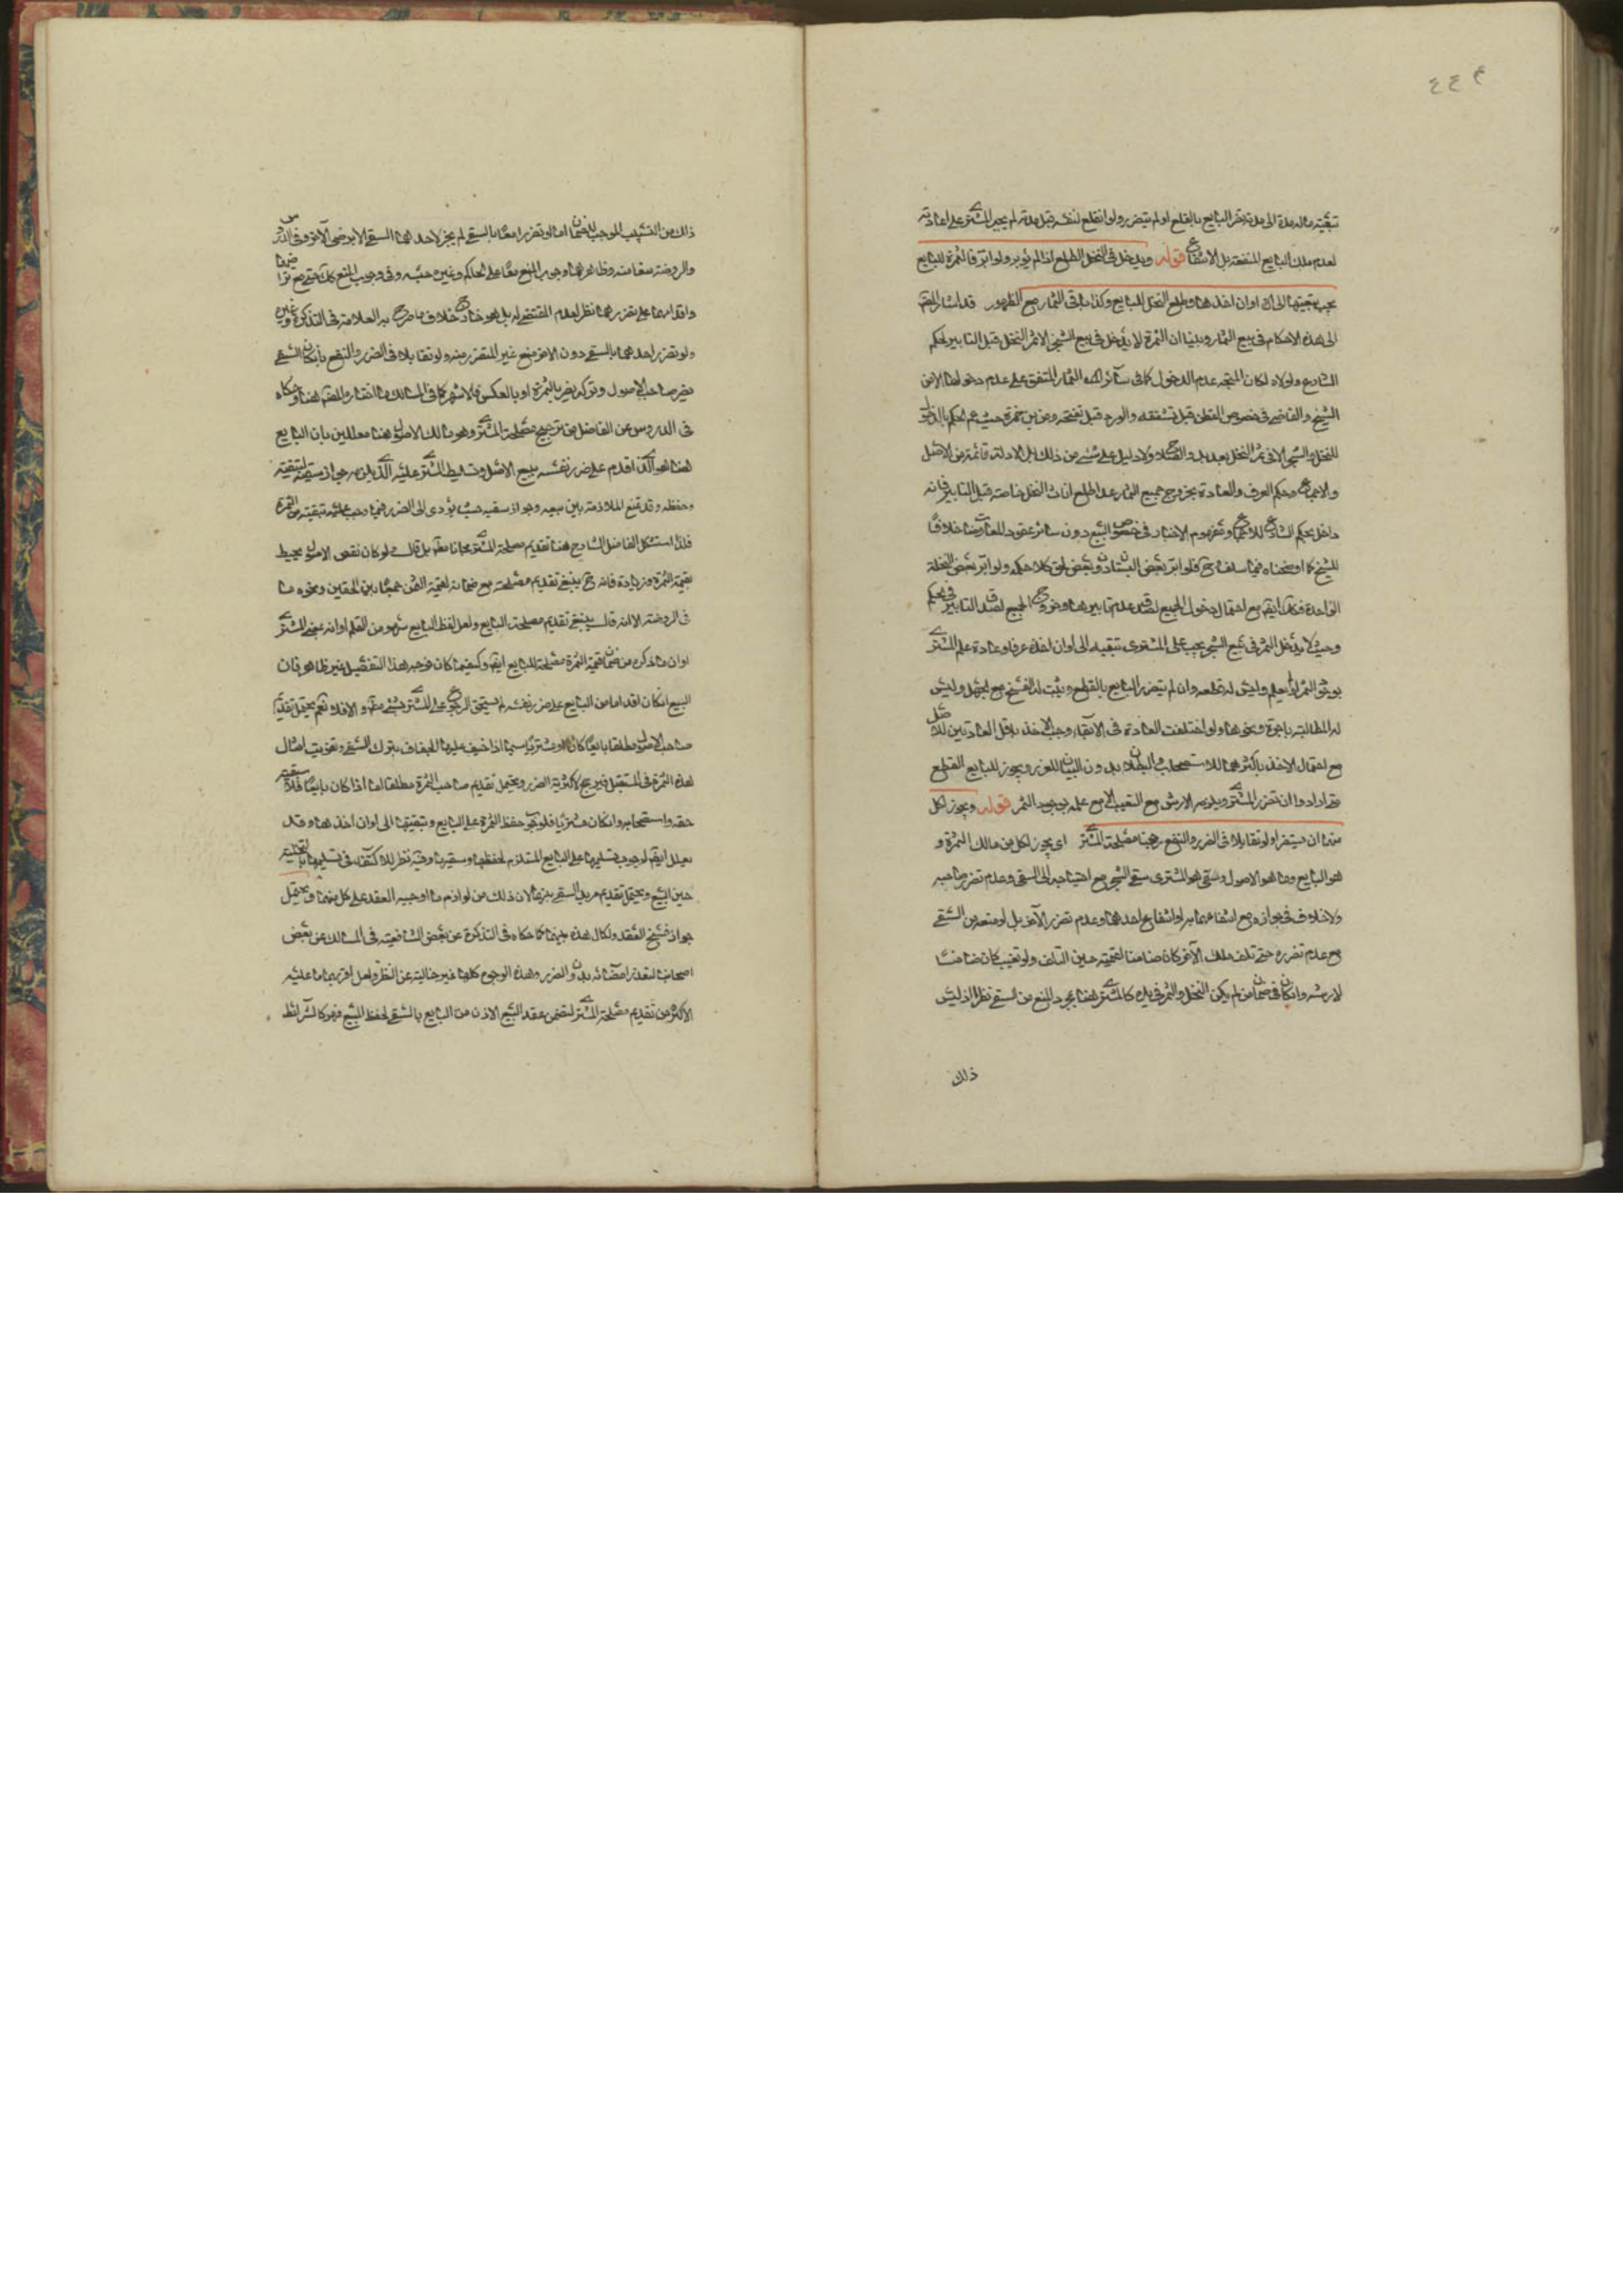 ٤٤٤
تبقيته ماله مدة الى مدته تضرر البايع بالقلع او لم يتضرر ولو انقلع لنفسه قبل مدته لم يجبر المشتري على اعادته
لعدم ملك البايع المنفعة بل الانتفاع قوله ويدخل في النخل الطلع اذا لم يؤبر ولو ابر فالثمرة للبايع
يجب تبقيتها الى اوان اخذها وطلع الفحل للبايع وكذا باقي الثمار مع الظهور قد اشار المصنف
الى هذه الاحكام في بيع الثمار وبينا ان الثمرة لا يدخل في بيع الشجر الا ثمر النخل قبل التابير لحكم
الشارع ولولاه لكان المتجه عدم الدخول كما في سائر افراد الثمار المتفق على عدم دخولها الا من
الشيخ والقاضي في خصوص القطن قبل تشققه والورد قبل تفتحه ومن بن حمزة حيث عم الحكم بالدخول
للنخل والشجر الا في ثمر النخل بعد بدو الصلاح ولا دليل على شئ من ذلك بل الادلة قائمة من الاصل
والاجماع وحكم العرف والعادة بخروج جميع الثمار عدا طلع اناث النخل خاصة قبل التابير فانه
داخل بحكم الشارع للاجماع ومفهوم الاخبار في خصوص البيع دون سائر عقود المعاوضات خلافا
للشيخ كما اوضحناه فيما سلف وح فلو ابر بعض البستان وبعض لحق كلا حكمه ولو ابر بعض النخلة
الواحدة فكك ايضا مع احتمال دخول الجميع لصدق عدم تابيرها وخروج الجميع لصدق التابير في الحكم
وحيث لا يدخل الثمر في بيع الشجر يجب على المشتري تبقيته الى اوان اخذه عرفا وعادة علم المشتري
بوجود الثمر ام لم يعلم وليس له قطعه وان لم يتضرر البايع بالقطع ويثبت له الفسخ مع الجهل وليس
له المطالبة باجرة ونحوها ولو اختلفت العادة في الابقاء وجب الاخذ باقل العادتين للاصل
مع احتمال الاخذ باكثرهما للاستصحاب والبطلان بدون البيان للغرر ويجوز للبايع القطع
متى اراد وان تضرر المشتري ويلزمه الارش مع التعييب لا مع علمه بوجود الثمر قوله ويجوز لكل
منهما ان يسقى ولو تقابلا في الضرر والنفع رجحنا مصلحة المشتري اي يجوز لكل من مالك الثمرة و
هو البايع ومالك الاصول وهو المشتري سقي الشجر مع احتياجه الى السقي وعدم تضرر صاحبه
ولا خلاف في جوازه مع انتفاعهما به او انتفاع احدهما وعدم تضرر الآخر بل لو منعه من السقي
مع عدم تضرره حتى تلف ملك الآخر كان ضامنا لقيمته حين التلف ولو تعيب كان ضامنا
لارشه وان كان في ضمان من لم يكن النخل والثمر في يده كالمشتري هنا بمجرد المنع من السقي نظر اذ ليس
ذلك
ذلك من التسبيب الموجب للضمان اما لو تضررا معا بالسقي لم يجز لاحدهما السقي الا برضى الآخر وفي الدروس
والروضة منعا منه وظاهرهما وجوب المنع معا على الحاكم وغيره حسبة وفي وجوب المنع كك حتى مع تراضيهما
واقدامهما على تضررهما نظر لعدم المقتضي له بل هو ح خلاف ما صرح به العلامة في التذكرة وغيره
ولو تضرر احدهما بالسقي دون الآخر منع غير المتضرر منه ولو تقابلا في الضرر والنفع بان كان السقي
يضر صاحب الاصول وتركه يضر بالثمرة او بالعكس فالاشهر كما في المسالك ما اختاره المصنف هنا وحكاه
في الدروس عن الفاضل من ترجيح مصلحة المشتري وهو مالك الاصول هنا معللين بان البايع
هنا هو الذي اقدم على ضرر نفسه ببيع الاصل وتسليط المشتري عليه الذي يلزمه جواز سقيه لتبقيته
وحفظه وقد تمنع الملازمة بين بيعه وجواز سقيه حيث يؤدي الى الضرر فيما وجب عليه تبقيته من الثمرة
فلذا استشكل الفاضل الشارح هنا تقديم مصلحة المشتري مجانا مطلقا بل قال ولو كان نقص الاصول يحيط
بقيمة الثمرة وزيادة فانه ح ينبغي تقديم مصلحته مع ضمانه لقيمة الثمن جمعا بين الحقين ونحوه ما
في الروضة الا انه قال ينبغي تقديم مصلحة البايع ولعل لفظ البايع سهو من القلم او انه بمعنى المشتري
او ان ما ذكره من ضمان قيمة الثمرة مصلحة للبايع ايضا وكيفما كان فوجه هذا التفصيل غير ظاهر فان
البيع ان كان اقداما من البايع على ضرر نفسه لم يستحق الرجوع على المشتري بشئ مطلقا والا فلا نعم يحتمل تقديم
صاحب الاصول مطلقا بايعا كان او مشتريا سيما اذا خيف عليها الجفاف بترك السقي وتفويت امثال
هذه الثمرة في المستقبل فيرجح لاكثرية الضرر ويحتمل تقديم صاحب الثمرة مطلقا اما اذا كان بايعا فلسبق
حقه واستصحابه وان كان مشتريا فلوجوب حفظ الثمرة على البايع وتبقيتها الى اوان اخذها وقد
يعلل ايضا لوجوب تسليمها على البايع المستلزم لحفظها وسقيها وفيه نظر للاكتفاء في تسليمها بالتخلية
حين البيع ويحتمل تقديم مريد السقي منهما لان ذلك من لوازم ما اوجبه العقد على كل منهما ويحتمل
جواز فسخ العقد ولكل هذه بينهما كما حكاه في التذكرة عن بعض الشافعية في المسالك عن بعض
اصحابنا لتعذر امضائه بدون الضرر وهذه الوجوه كلها غير خالية عن النظر ولعل اقربها ما عليه
الاكثر من تقديم مصلحة المشتري لتضمن عقد البيع الاذن من البايع بالسقي لحفظ المبيع فهو كالشرائط